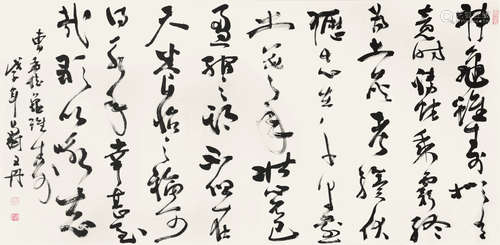 神龜雖壽猶有
竟時騰蛇乘霧終
為土灰老驥伏
櫪志在千里烈
士暮年壯心不已
盈縮之期不但在
天養怡之福可
得永年幸甚至
哉歌以詠志
龜雖壽